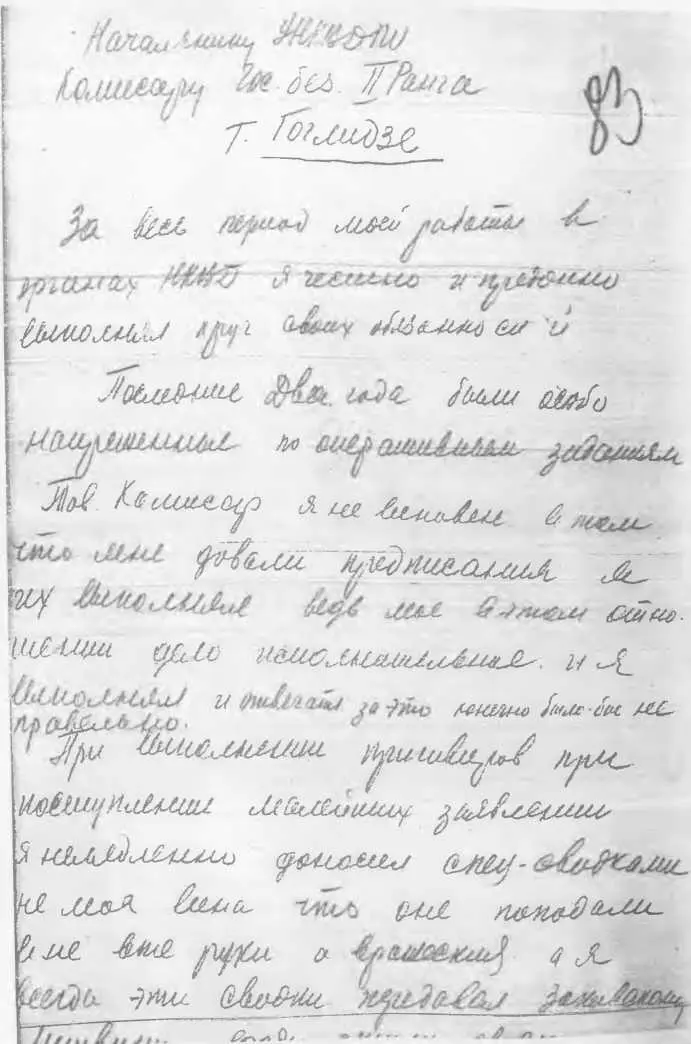 Начальнику УНКВД ЛО
Комиссару Гос. без. II Ранга
т. Гоглидзе
83
За весь период моей работы в
органах НКВД я честно и преданно
выполнял круг своих обязанностей
Последние Два года были особо
напряженные по оперативным заданиям
Тов. Комисар я не виновен в том
что мне довали предписания я
их выполнял ведь мое в этом отно-
шении дело исполнительное. и я
выполнял и отвечать за это конечно было-бы не
правельно.
При выполнении приговоров при
поступление малейших заявлении
я немедленно доносил спец-сводками
не моя вина что оне поподали
в не вте руки а вражеские а я
всегда эти сводки передавал